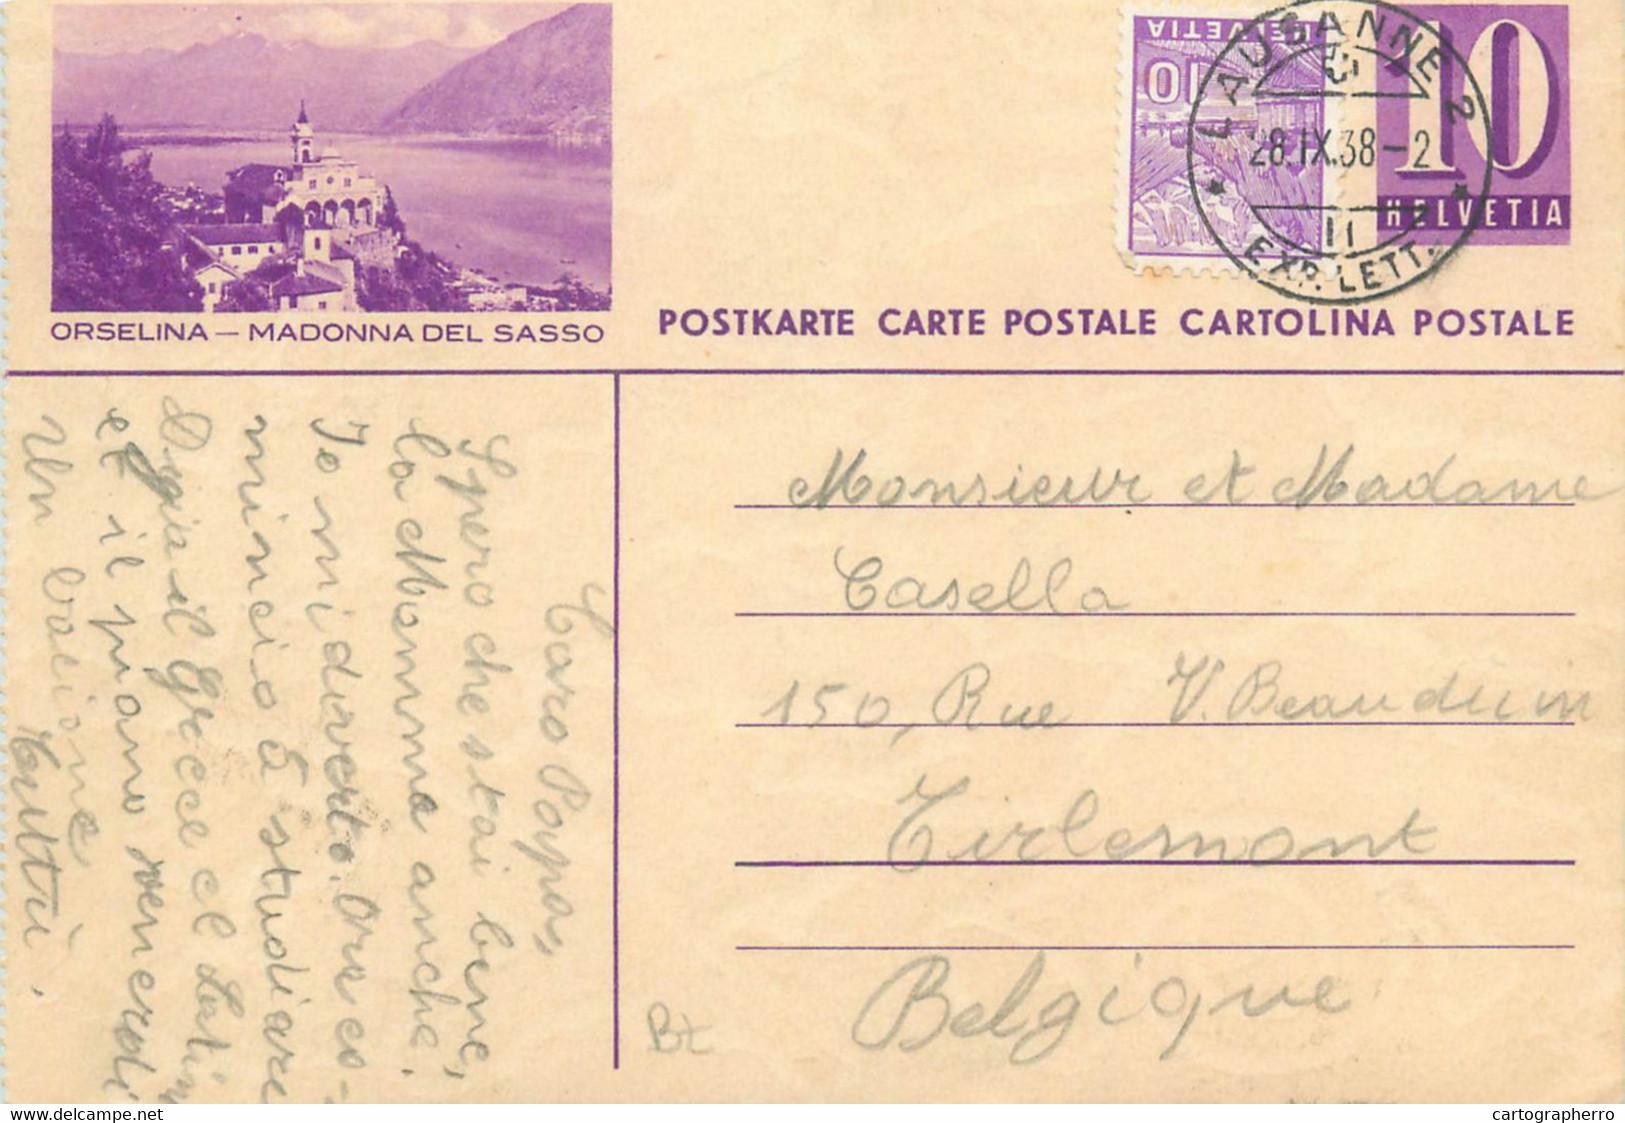 ORSELINA – MADONNA DEL SASSO
HELVETIA
10
LAUSANNE 2
28.IX.38–2
11
EXP. LETT.
10
HELVETIA
POSTKARTE CARTE POSTALE CARTOLINA POSTALE
Monsieur et Madame
Casella
150, Rue V. Beauduin
Tirlemont
Belgique
Bz
Caro Papas,
Spero che stai bene,
la Mamma anche.
Io mi diverto. Ora co-
mincio a studiare
il Greco el Latin
et il piano venerdi
Un bacione
cartographerro